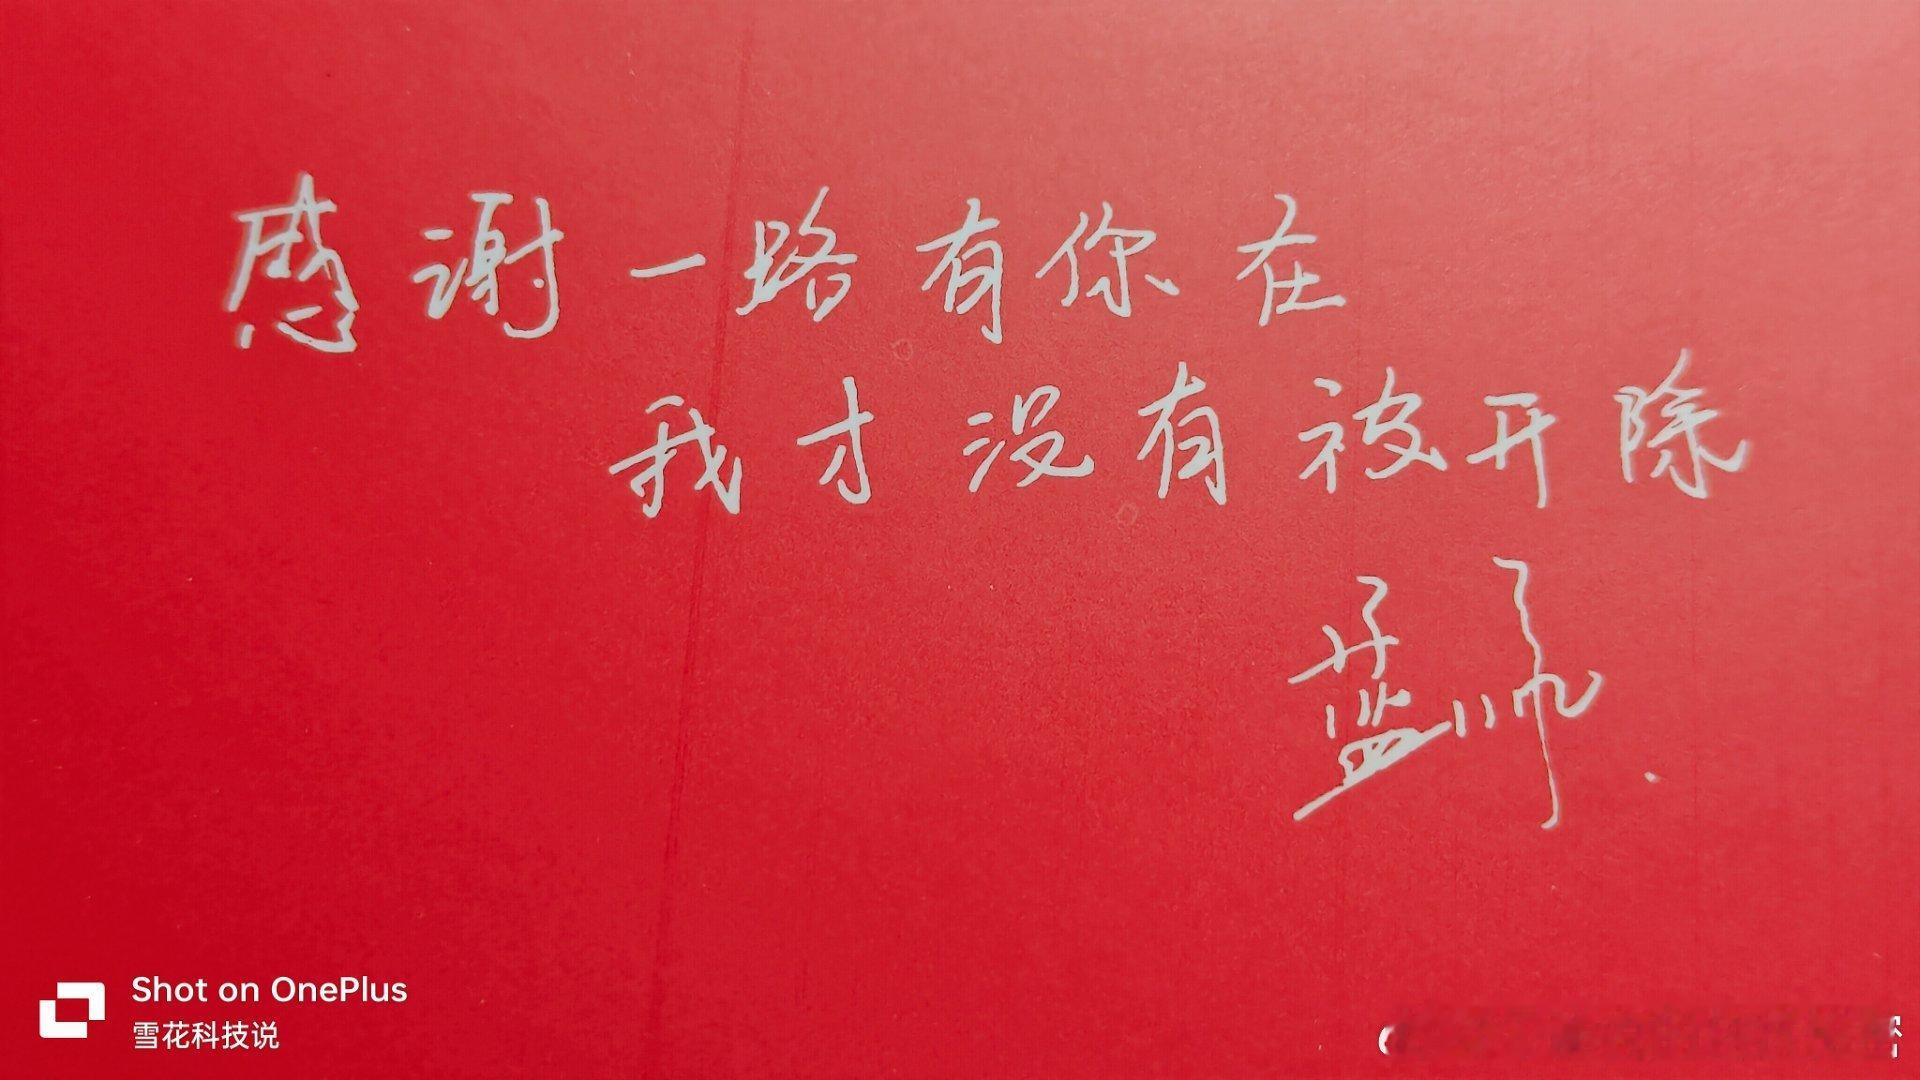 感谢一路有你在
我才没有被开除
Shot on OnePlus
雪花科技说